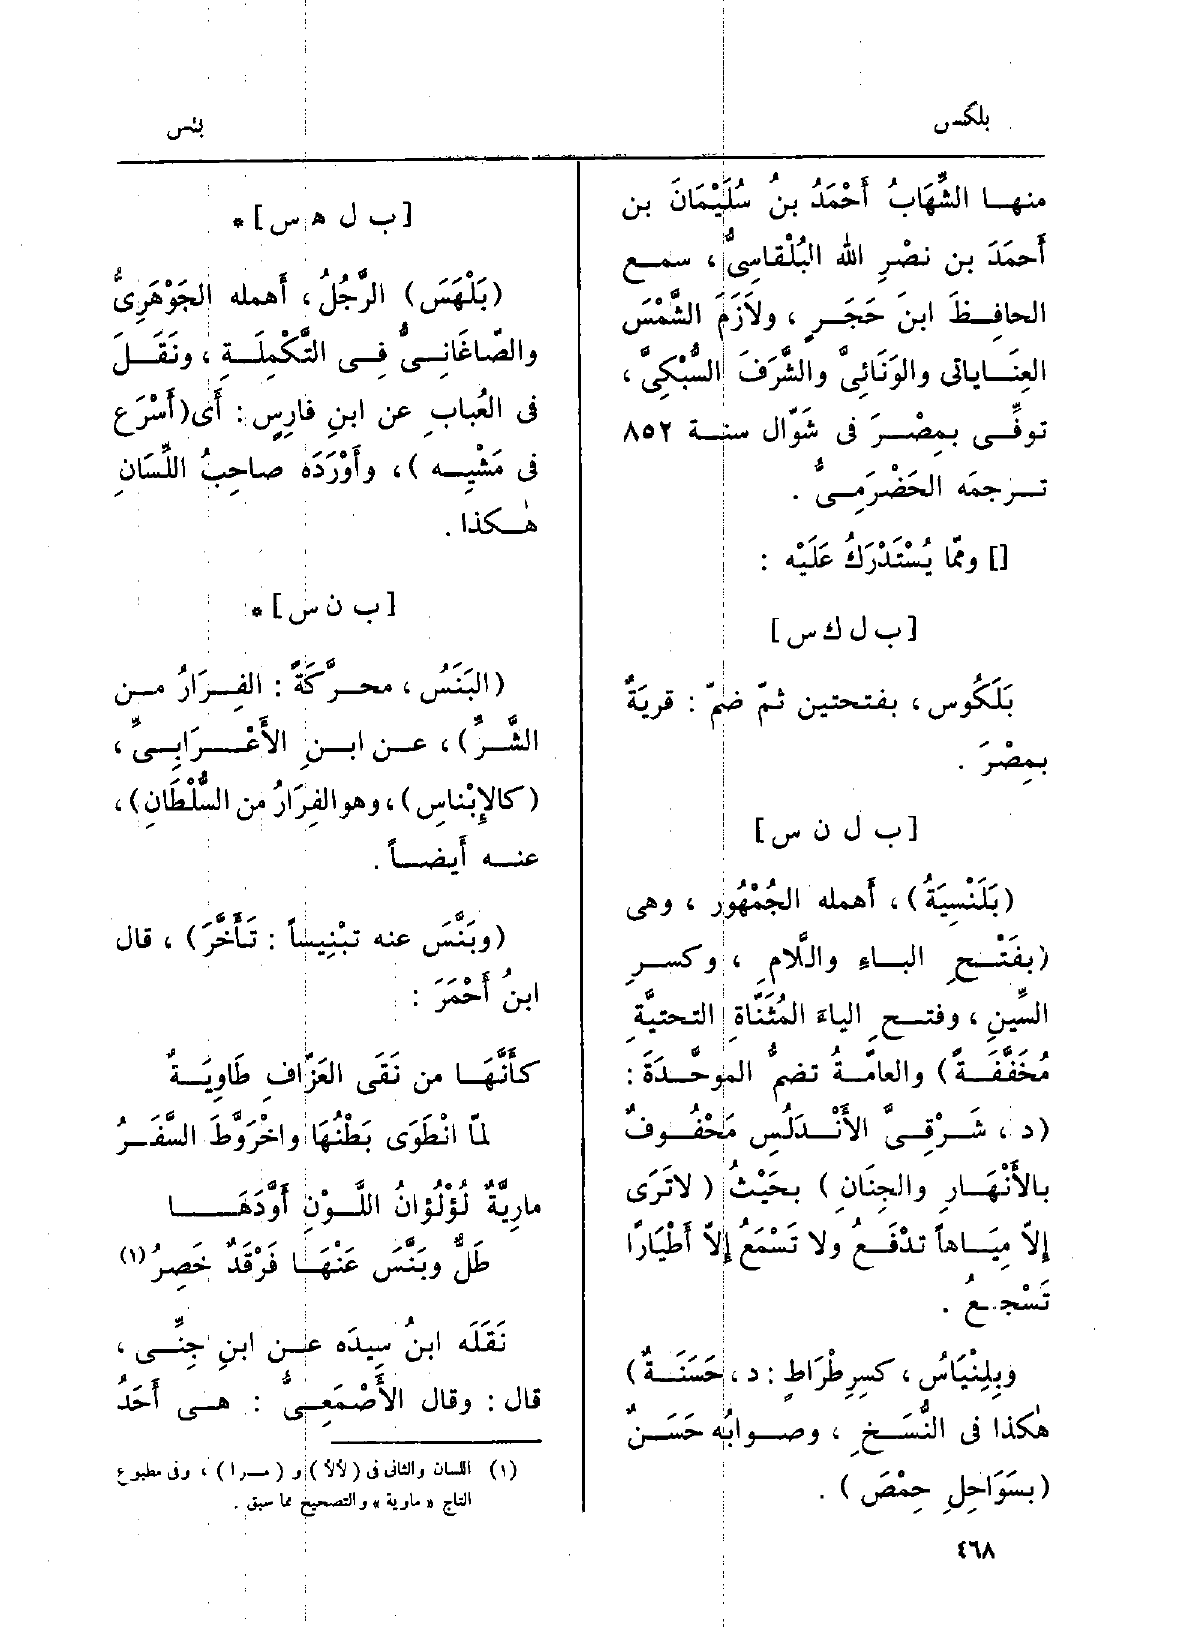 بلكس
بنس
منهـا الشِّهَابُ أَحْمَدُ بنُ سُلَيْمَانَ بن
أَحمَدَ بن نصْرِ الله البُلْقاسِىُّ ، سمـع
الحافِـظَ ابنَ حَجَـرٍ ، ولاَزَمَ الشَّمْسَ
العِنَـاياتى والوَنَائِىَّ والشَّرَفَ السُّبْكِىَّ ،
توفِّـى بـمِصْـرَ فى شَوّال سنـة ٨٥٢
تـرجمَه الحَضْرَمِـىُّ .
[] وممّا يُسْتَدْرَكُ عَلَيْه :
[ب ل ك س]
بَلَكُوس ، بفتحتين ثمّ ضمّ : قريَةٌ
بمِصْرَ .
[ب ل ن س]
(بَلَنْسِيَةُ) ، أَهمله الجُمْهُور ، وهى
(بفَتْـحِ البـاءِ والَّلامِ ، وكسـرِ
السِّينِ ، وفتـحِ الياءَ المُثَنَّاةِ التحتيَّةِ
مُخَفَّفَـةً) والعامَّـةُ تضمُّ الموحَّـدَةَ :
(د ، شَـرْقِـىَّ الأَنْـدَلُسِ مَحْفُـوفٌ
بالأَنْهَـارِ والجِنَانِ) بحَيْثُ (لاتَرَى
إِلاّ مِيَـاهاً تدْفَـعُ ولا تَسْمَعُ إِلاَّ أَطْيَارًا
تَسْجـعُ .
وبِلِنْيَاسُ ، كسِرِطْرَاطٍ : د ، حَسَنَـةٌ)
هٰكذا فى النُّسَـخِ ، وصـوابُه حَسَـنٌ
(بسَوَاحلِ حِمْصَ) .
[ب ل ه س] *
(بَلْهَسَ) الرَّجُلُ ، أَهمله الجَوْهَرِىُّ
والصّاغَانِـىُّ فـى التَّكْمِلَـةِ ، ونَقَـلَ
فى العُبابِ عن ابنِ فارِسٍ : أَى (أَسْرَع
فى مَشْيِـه) ، وأَوْرَدَه صاحِبُ اللِّسَانِ
هٰـكذا .
[ب ن س] *
(البَنَسُ ، محـرَّكَةً : الفِـرَارُ مـن
الشَّـرِّ) ، عـن ابـنِ الأَعْـرَابِـىِّ ،
(كالإِبْناسِ) ، وهو الفِرَارُ من السُّلْطَانِ) ،
عنـه أَيضـاً .
(وبَنَّسَ عنه تبْنِيساً : تَأَخَّرَ) ، قال
ابنُ أَحْمَرَ :
كأَنَّهَـا من نَقَى العَزّافِ طَاوِيَـةٌ
لمّا انْطَوَى بَطْنُهَا واخْرَوَّطَ السَّفَـرُ
مارِيَّةٌ لُؤْلُؤَانُ اللَّـوْنِ أَوَّدَهَـا
طَلٌّ وبَنَّسَ عَنْهَـا فَرْقَدٌ خَصِرُ (١)
نَقَلَه ابنُ سِيدَه عـن ابنِ جِنِّـى ،
قال : وقال الأَصْمَعِـىُّ : هـى أَحَدُ
(١) اللسان والثانى فى (لألأ) و (مـرا) ، وفى مطبوع
التاج «ماوية» والتصحيح مما سبق .
٤٦٨